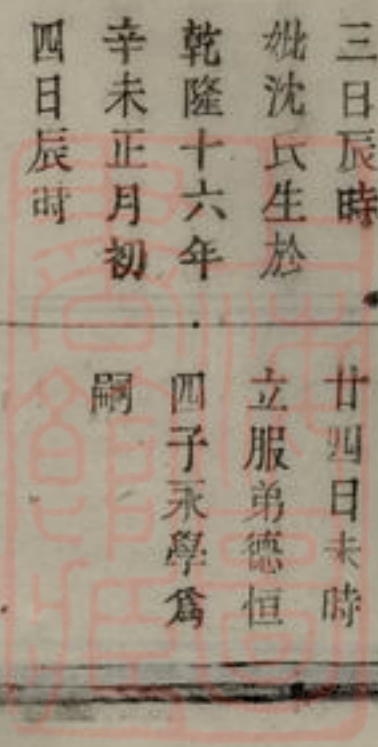 三日辰時
妣沈氏生於
乾隆十六年
辛未正月初
四日辰时
廿四日未時
立服弟德恒
四子永學爲
嗣